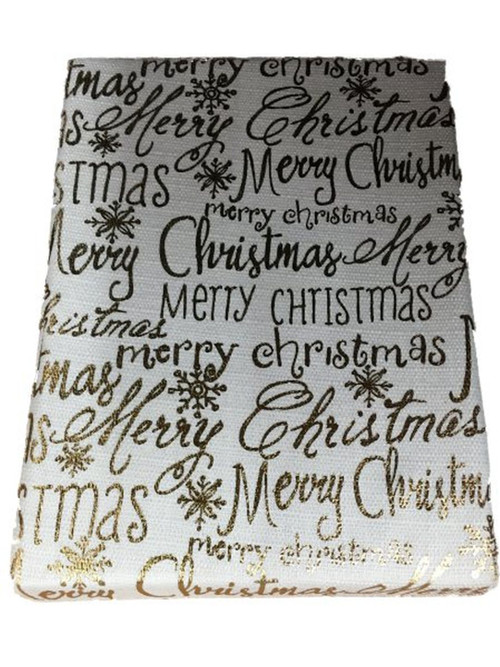 mas merry christmas
as Merry Christmas
STMAS Merry Christmas
merry christmas
Merry Christmas Merry
MERRY CHRISTMAS
Christmas
merry christmas
mas Merry Christmas
as
STMAS Merry Christm
merry christmas
Merry Christmas Merry